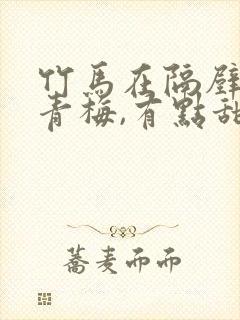 竹馬在隔壁
青梅,有點甜
蕎麦而而